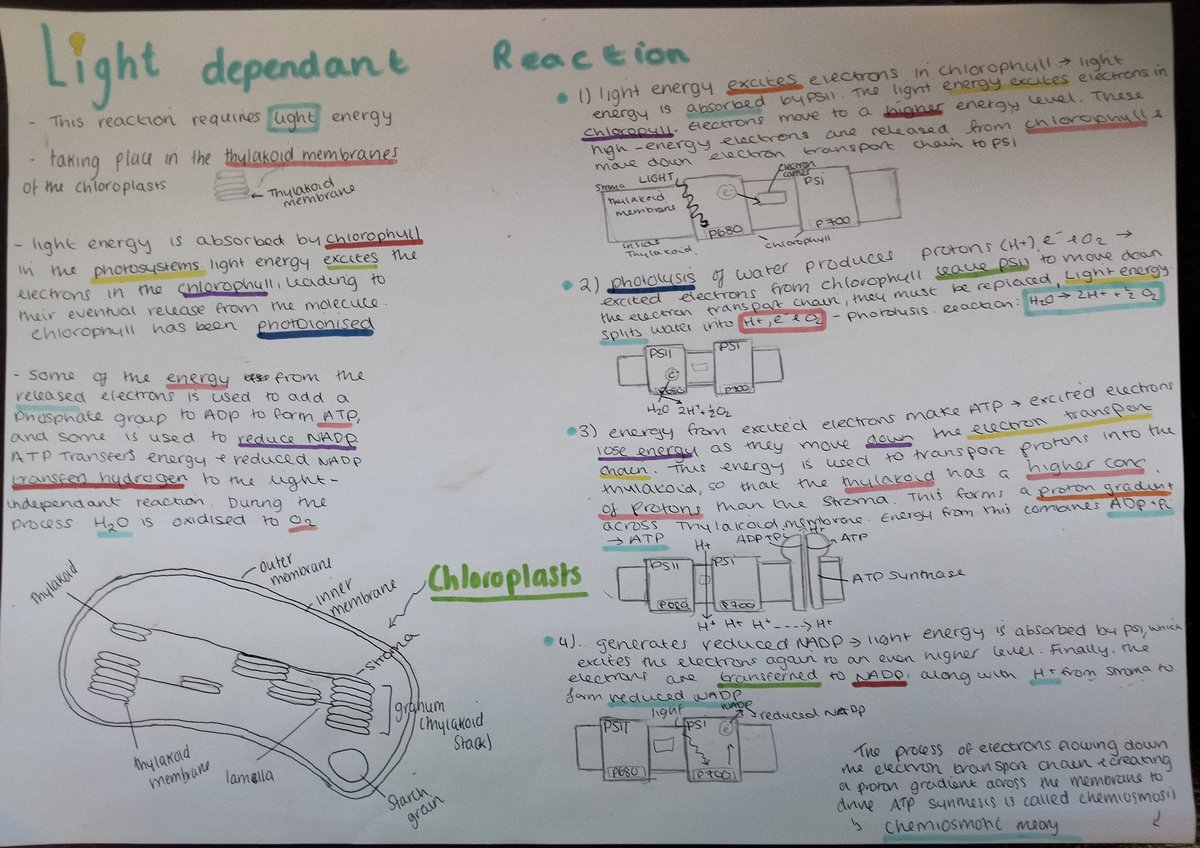 Light dependant Reaction
- This reaction requires light energy
- taking place in the thylakoid membranes
of the chloroplasts
Thylakoid
membrane
- light energy is absorbed by chlorophyll
in the photosystems. light energy excites the
electrons in the chlorophyll, leading to
their eventual release from the molecule.
chlorophyll has been photoionised
- Some of the energy from the
released electrons is used to add a
phosphate group to ADP to form ATP,
and some is used to reduce NADP
ATP Transfers energy + reduced NADP
transfer hydrogen to the light-
independant reaction. During the
process H2O is oxidised to O2
Chloroplasts
thylakoid
outer
membrane
inner
membrane
stroma
granum
(thylakoid
stack)
thylakoid
membrane
lamella
starch
grain
1) light energy excites electrons in chlorophyll → light
energy is absorbed by PSII. The light energy excites electrons in
chloropyll. Electrons move to a higher energy level. These
high-energy electrons are released from chlorophyll &
move down electron transport chain to PSI
Stroma
LIGHT
electron
carrier
PSI
thylakoid
membrane
e-
P680
P700
inside
Thylakoid
chlorophyll
2) photolysis of water produces protons (H+), e- + O2 →
excited electrons from chlorophyll leave PSII to move down
the electron transport chain, they must be replaced, Light energy
splits water into H+, e- + O2 - photolysis. reaction: H2O → 2H+ + ½ O2
PSII
PSI
e-
P680
P700
H2O 2H+ + ½O2
3) energy from excited electrons make ATP → excited electrons
lose energy as they move down the electron transport
chain. This energy is used to transport protons into the
thylakoid, so that the thylakoid has a higher conc.
of protons than the stroma. This forms a proton gradient
across Thylakoid membrane. Energy from this combines ADP + Pi
→ ATP
H+
ADP+Pi
H+
ATP
PSII
PSI
P680
P700
ATP Synthase
H+ H+ H+ ----> H+
4). generates reduced NADP → light energy is absorbed by PSI, which
excites the electrons again to an even higher level. Finally, the
electrons are transferred to NADP, along with H+ from stroma to
form reduced NADP
light
NADP
reduced NADP
PSII
PSI
e-
P680
P700
The process of electrons flowing down
the electron transport chain + creating
a proton gradient across the membrane to
drive ATP synthesis is called chemiosmosis
chemiosmotic theory